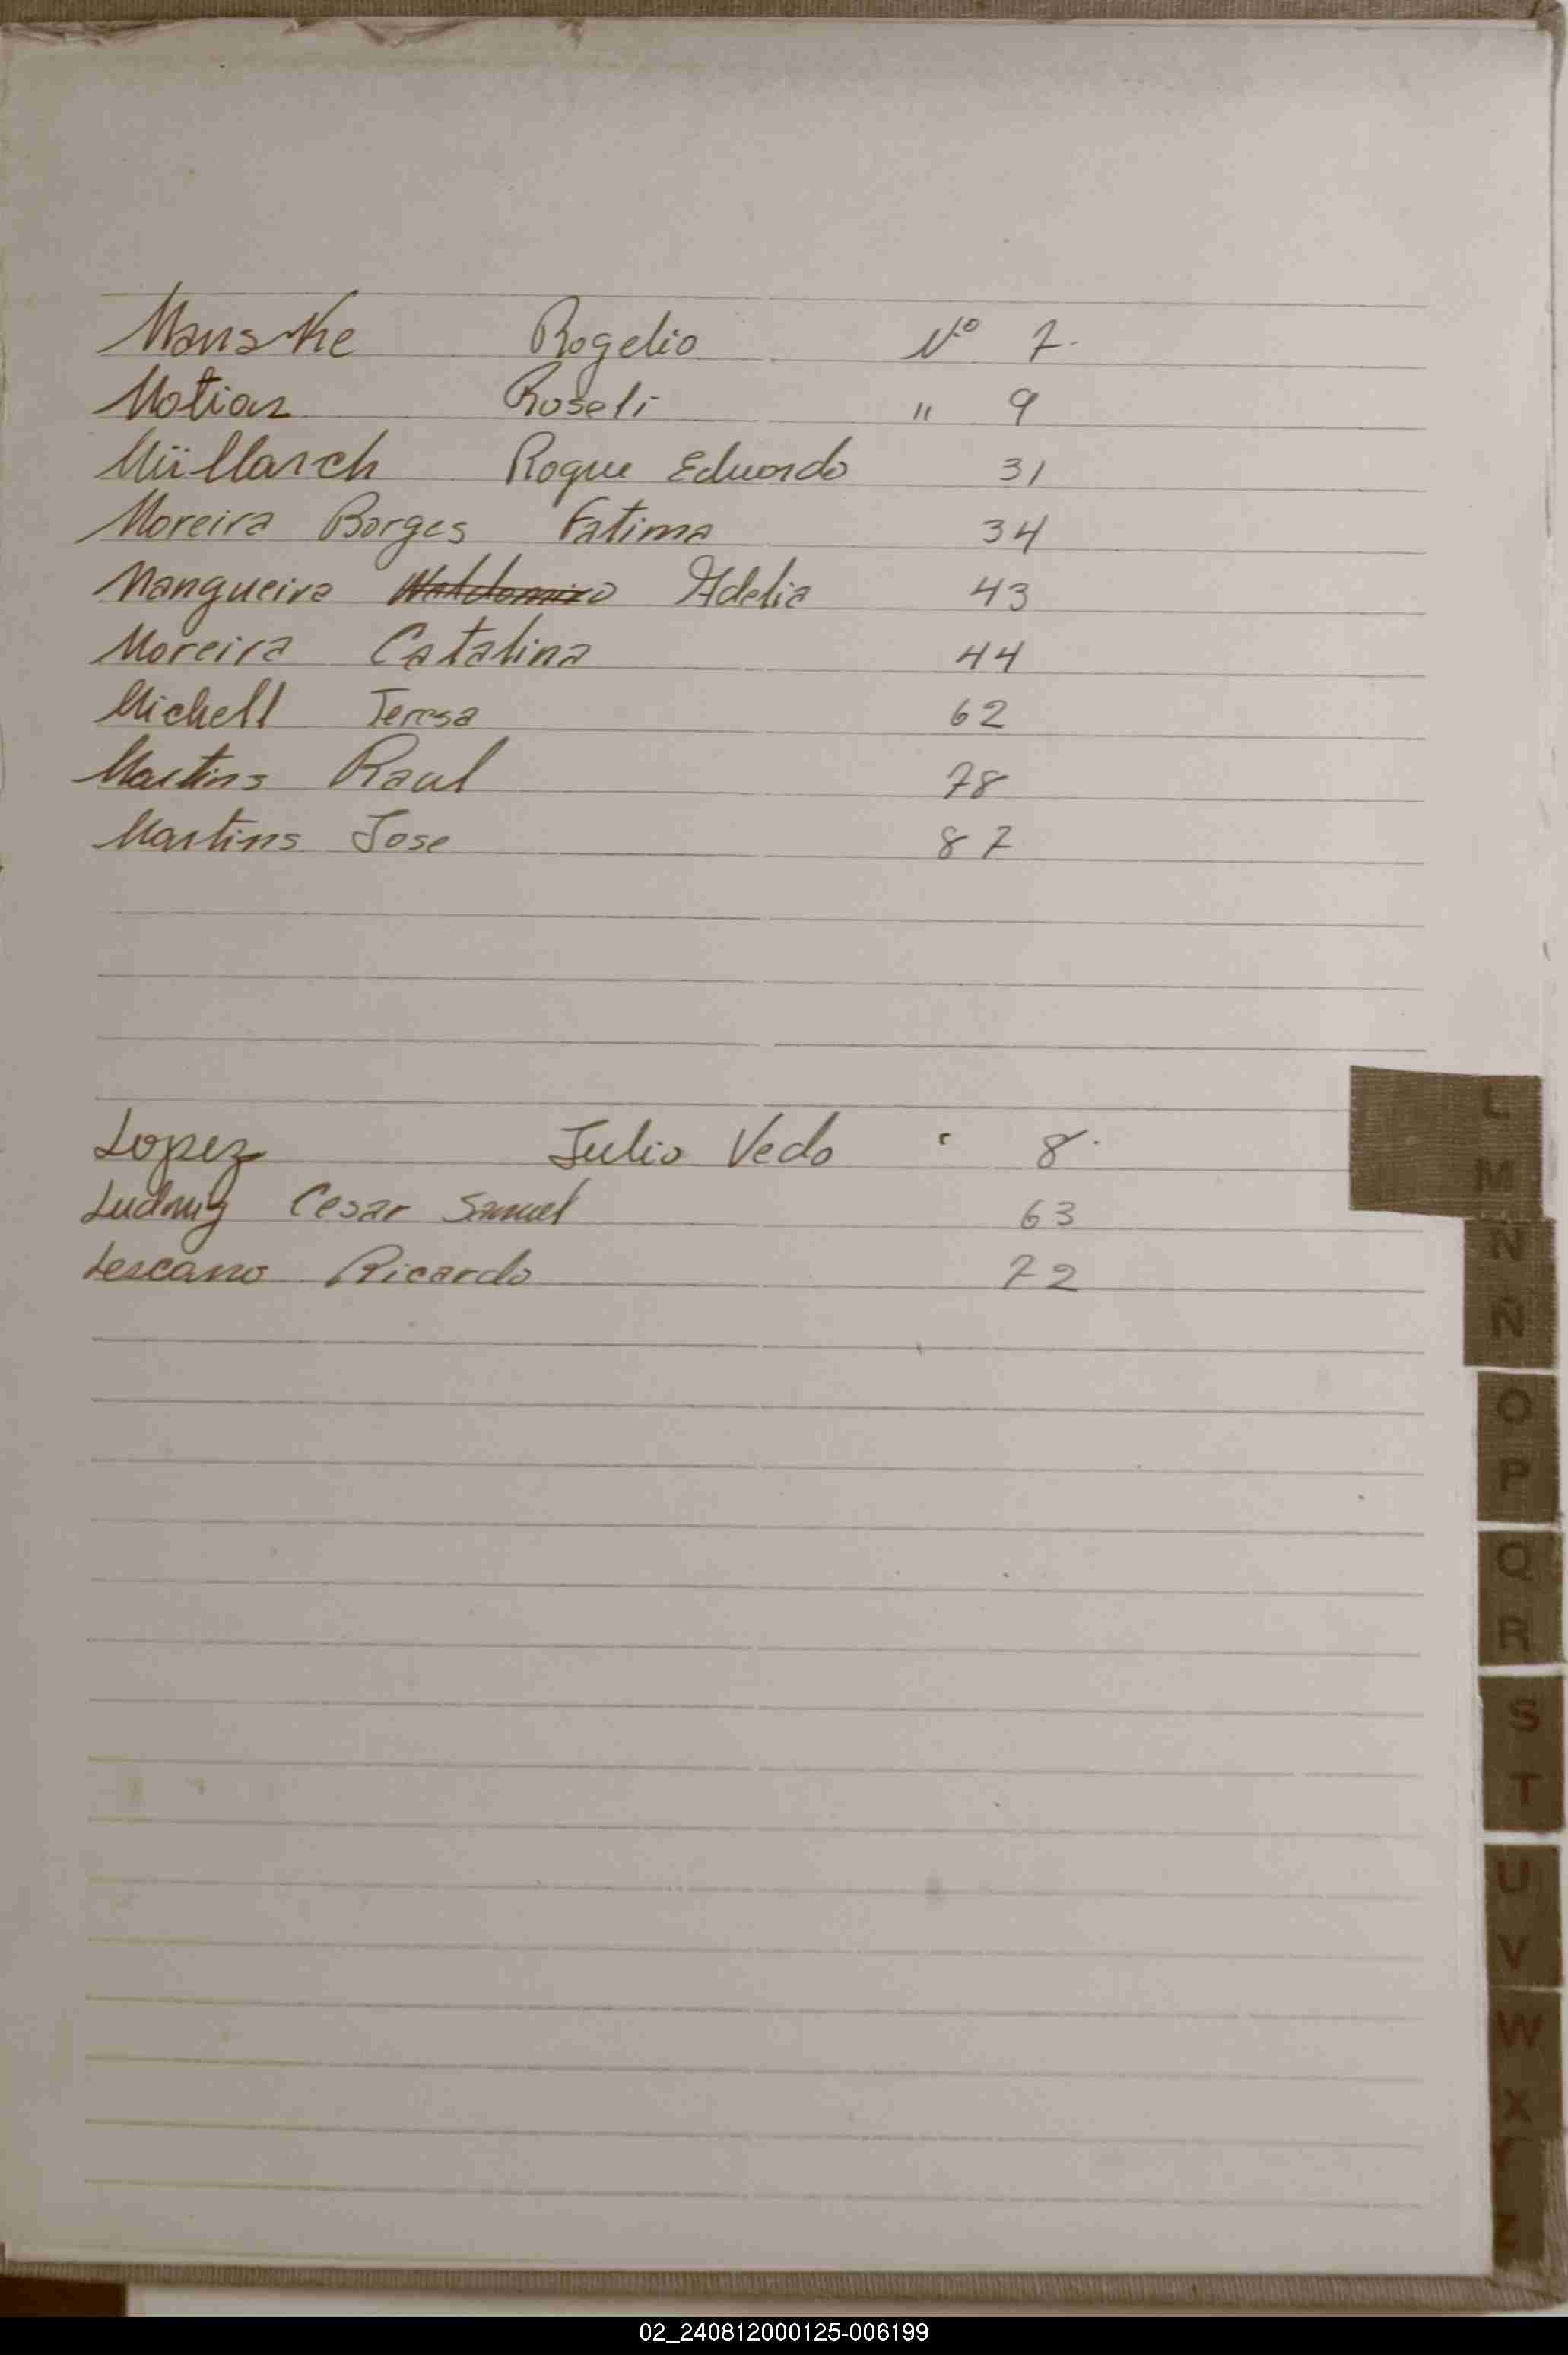 Manske Rogelio Nº 7.
Motiaz Roseli " 9
Müllarch Roque Eduardo 31
Moreira Borges Fatima 34
Mangueira Waldomiro Adelia 43
Moreira Catalina 44
Michell Teresa 62
Martins Raul 78
Martins Jose 87
Lopez Julio Vedo 8.
Ludwig Cesar Samuel 63
Lescano Ricardo 72
L
M
N
Ñ
O
P
Q
R
S
T
U
V
W
X
Y
Z
02_240812000125-006199